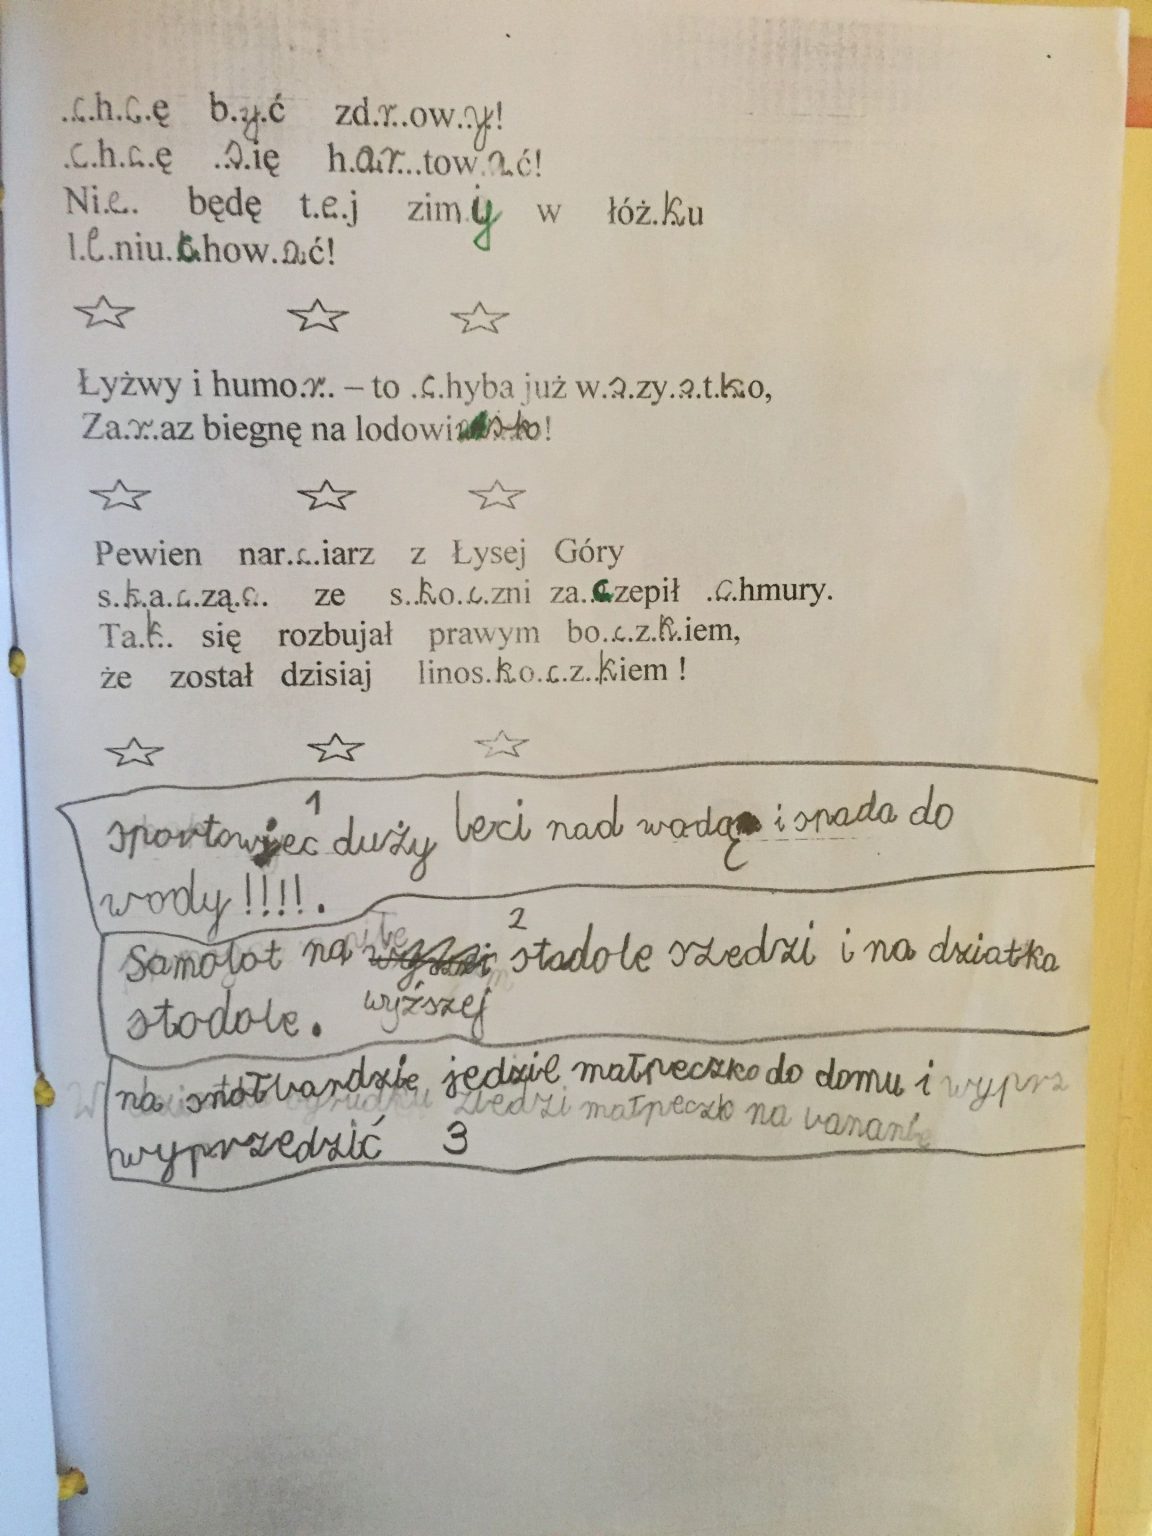 .c.h.c.ę b.y.ć zd.r..ow..y.!
.c.h.c.ę .s.ię h.ar...tow.a.ć!
Ni.e.. będę t.e.j zim.y w łóż.ku
l.e.niu.c.how.a.ć!
Łyżwy i humo.r.. – to .c.hyba już w.s.zy.s.t.ko,
Za.r..az biegnę na lodowi..sko!
Pewien nar.c.iarz z Łysej Góry
s.k.a.c.zą.c. ze s..ko.c.zni za..czepił .c.hmury.
Ta.k.. się rozbujał prawym bo.c.z.k.iem,
że został dzisiaj linos.ko.c.z..kiem !
1
sportowiec duży leci nad wodą i spada do
wody !!!!.
2
Samolot na stodole szedzi i na dziatka
wyższej
stodole.
na jedzie małpeczko do domu i wyprz
szedzi małpeczko na
wyprzedzić 3